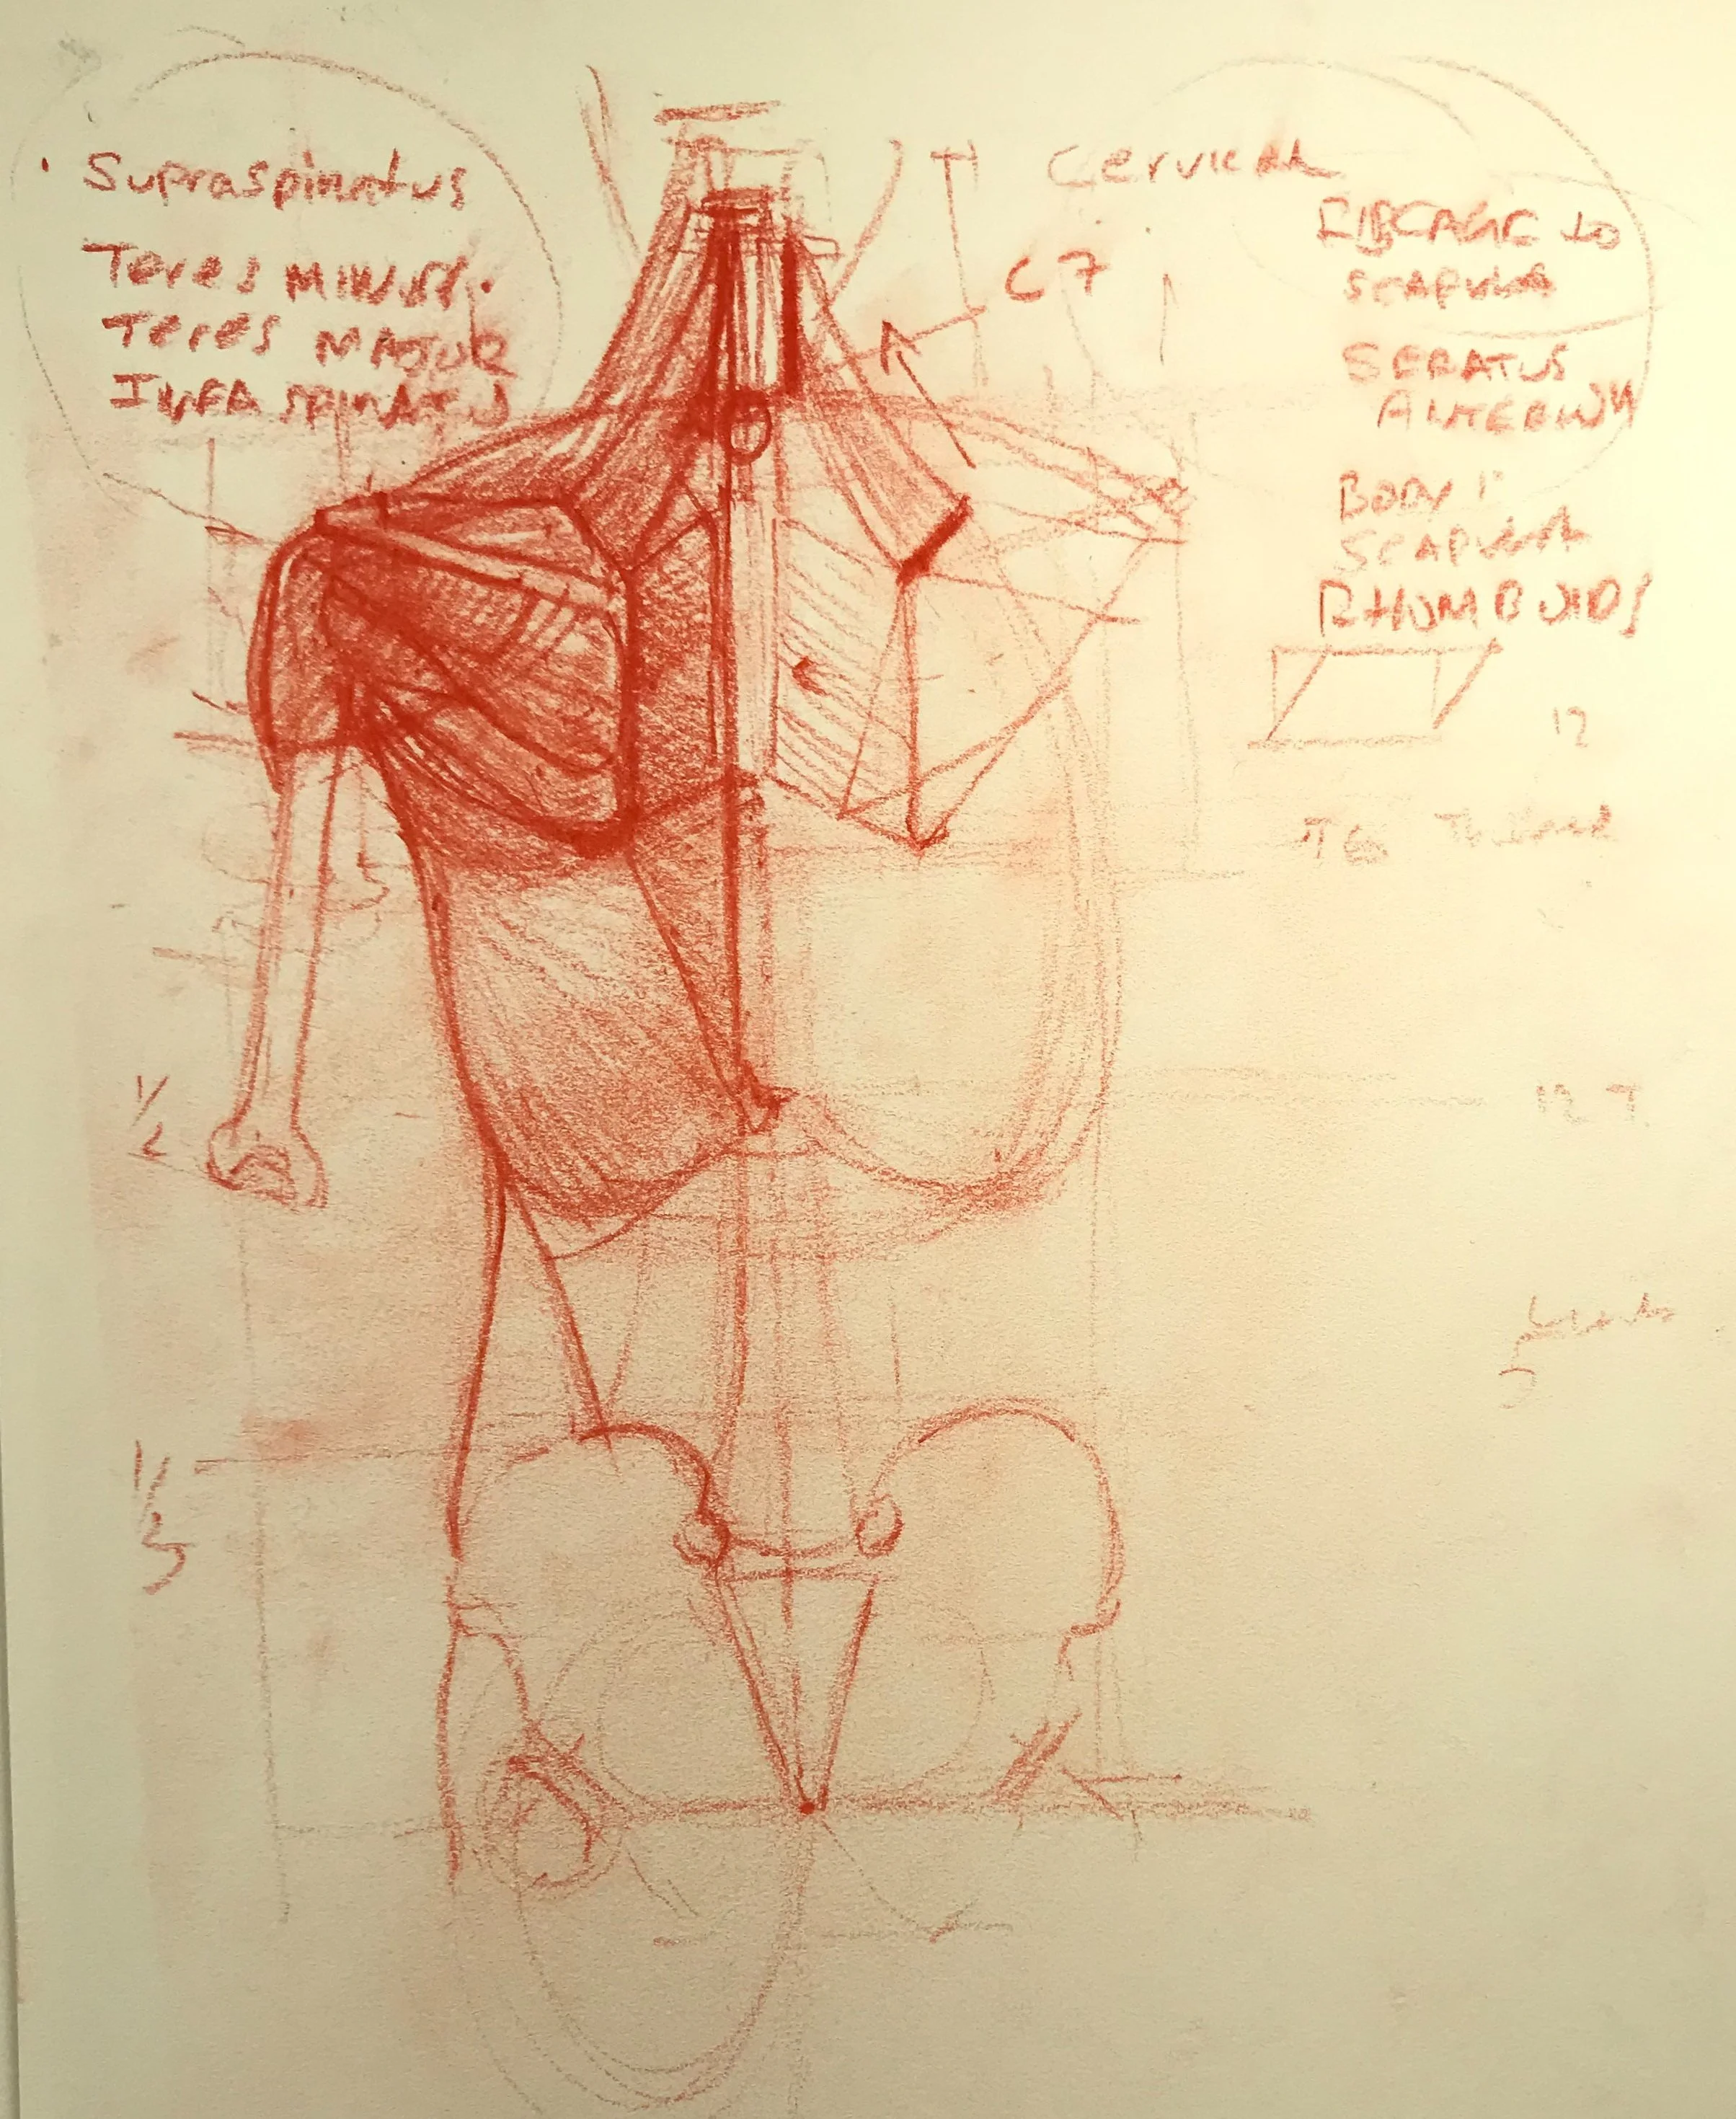 Supraspinatus
Teres MINUS
Teres MAJOR
INFRASPINATUS
Cervical
C7
RIBCAGE to
SCAPULA
SERATUS
ANTERIOR
BODY
SCAPULA
RHOMBOIDS
12
T6
12 T
1/2
1/3